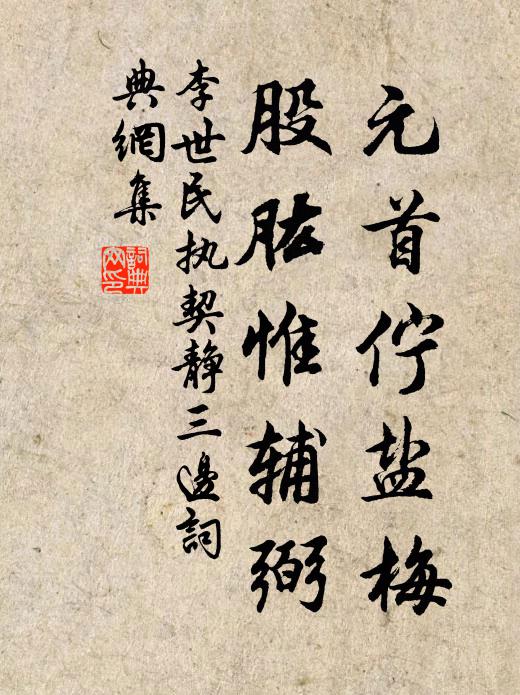 元首佇盐梅
股肱惟辅弼
李世民执契静三邊詞
典網集
詞典
网印